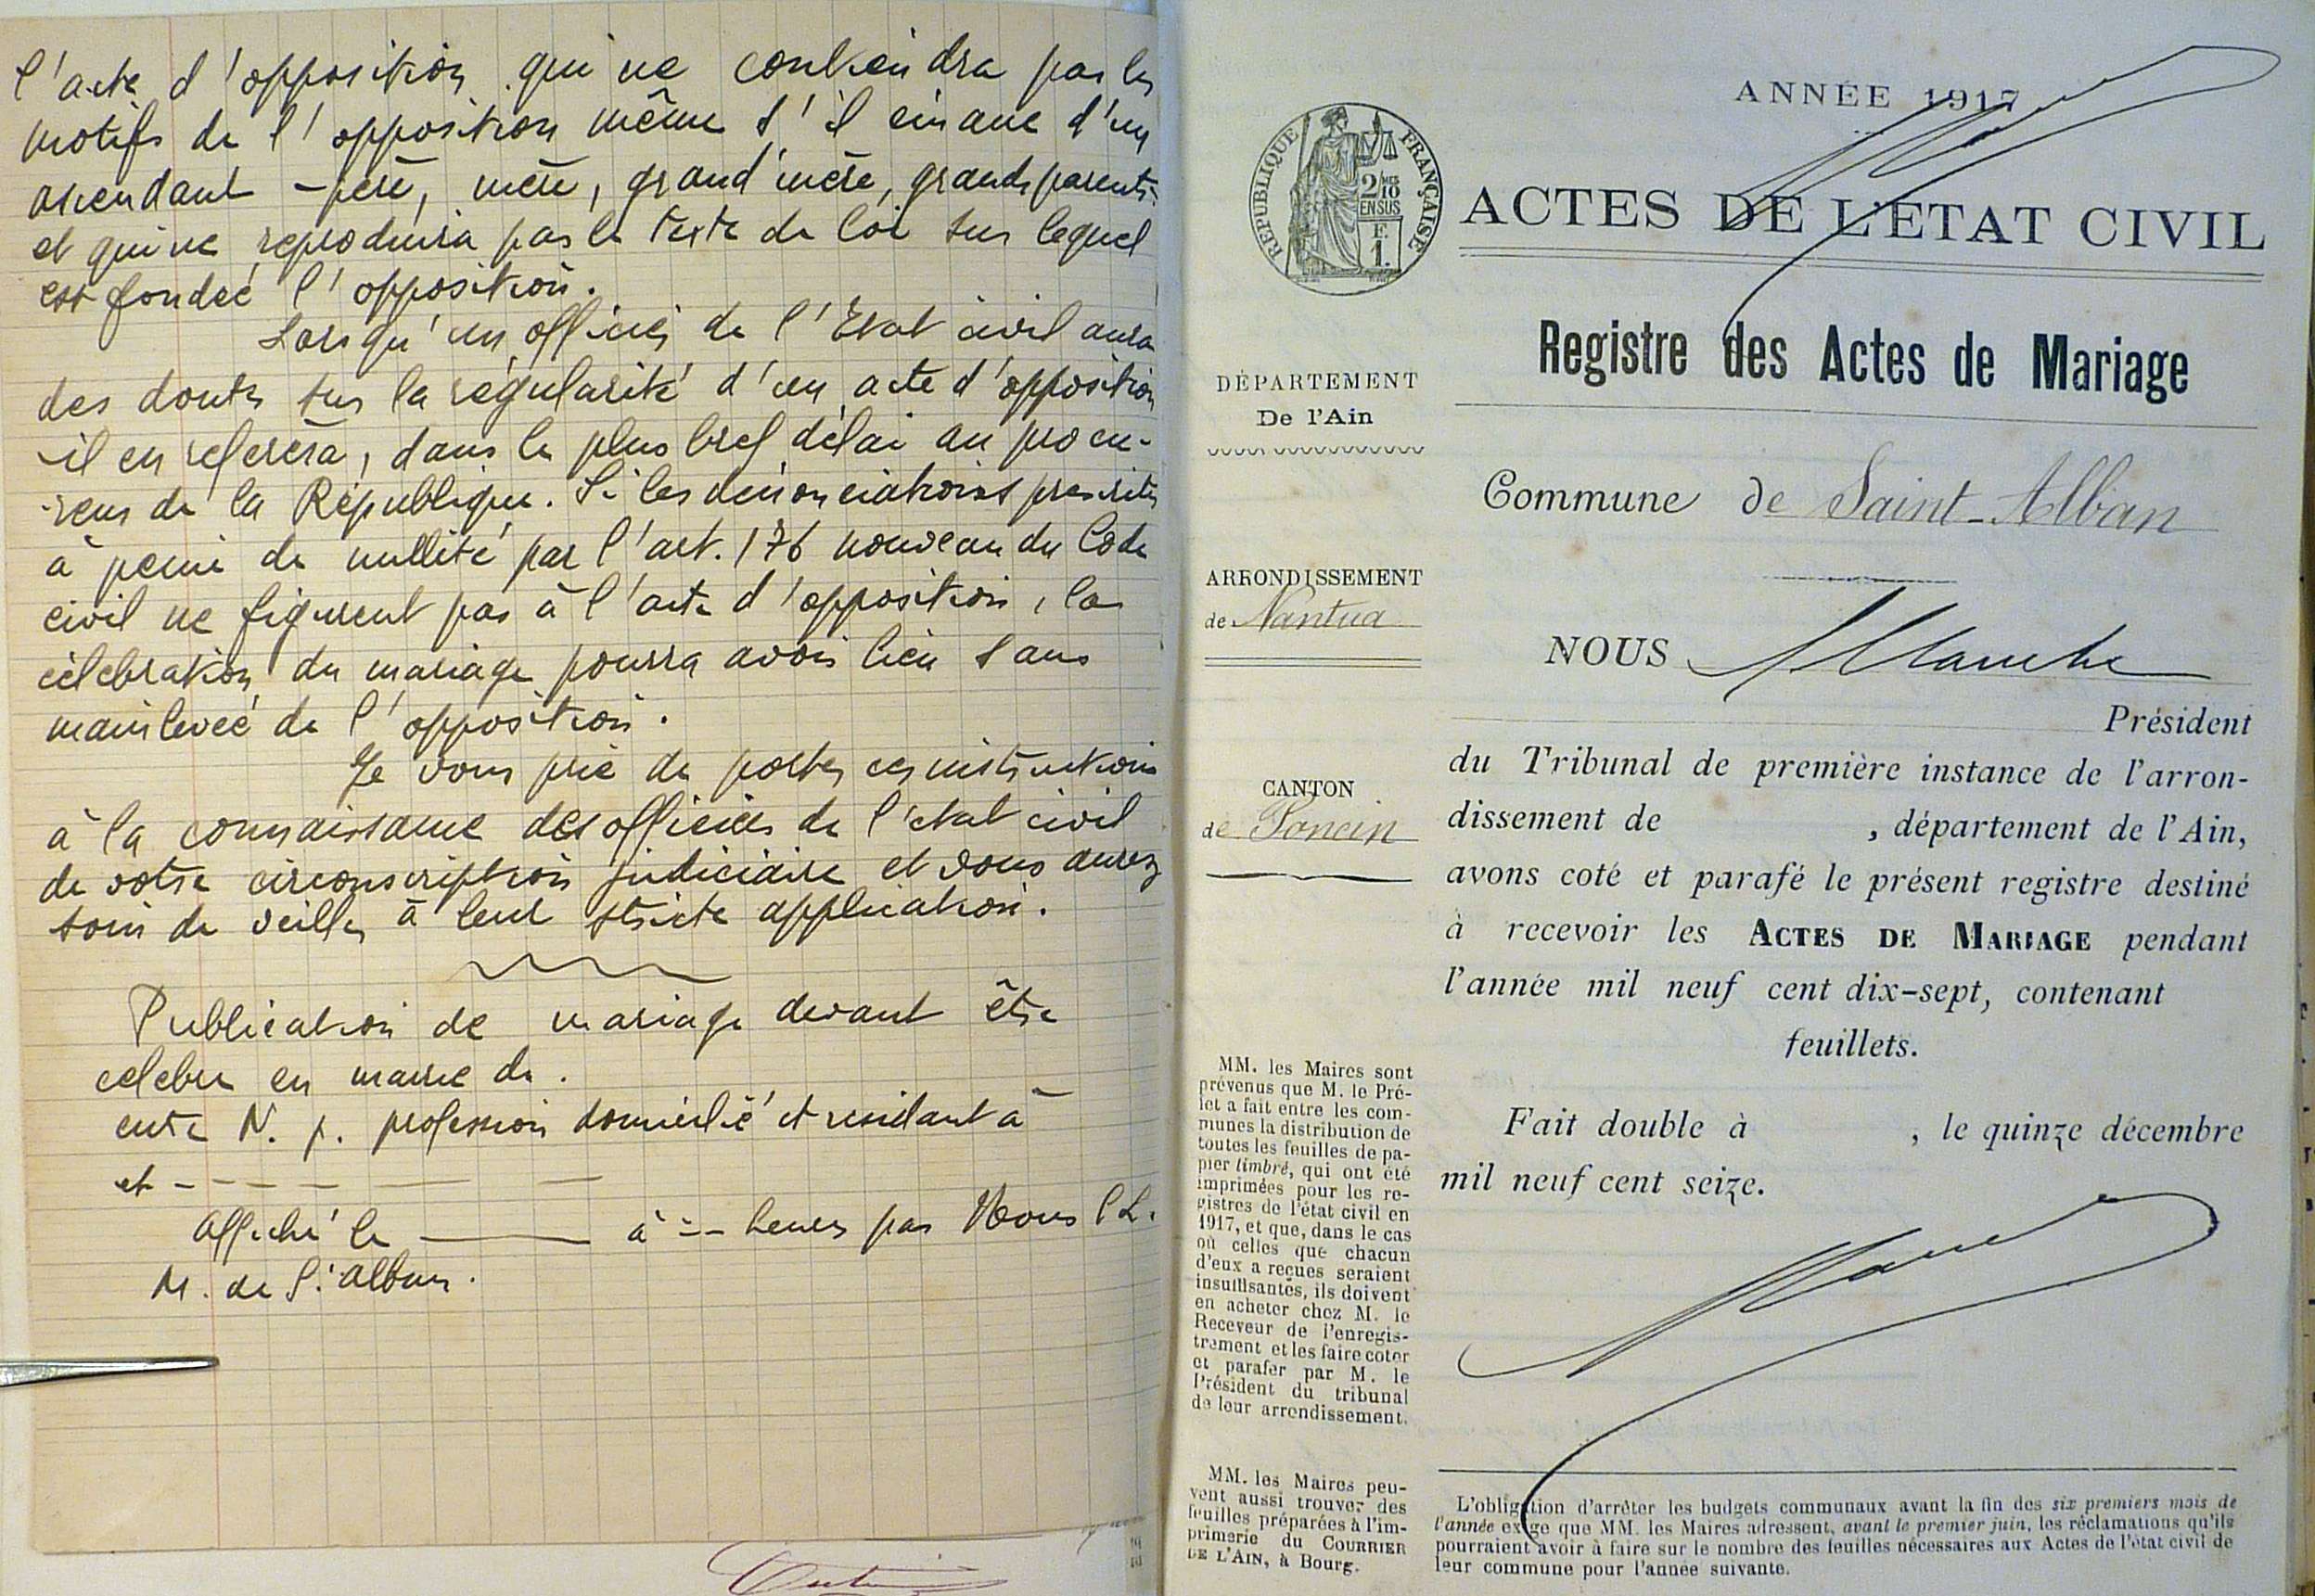 l'acte d'opposition qui ne contiendra pas les
motifs de l'opposition même s'il émane d'un
ascendant - père, mère, grand'mère, grands parents.
et qui ne reproduira pas le texte de loi sur lequel
est fondée l'opposition.
Lorsqu'un officier de l'Etat civil aura
des doutes sur la régularité d'un acte d'opposition
il en référera, dans le plus bref délai au procu-
reur de la République. Si les dénonciations prescrites
à peine de nullité par l'art. 176 nouveau du Code
civil ne figurent pas à l'acte d'opposition, la
célébration du mariage pourra avoir lieu sans
mainlevée de l'opposition.
Je vous prie de porter ces instructions
à la connaissance des officiers de l'état civil
de votre circonscription judiciaire et vous aurez
soin de veiller à leur stricte application.
Publication de mariage devant être
célébré en mairie de .
entre N. p. profession domicilié et résidant à
et - - - - - -
Affiché le ——— à -- heures par Nous
M. de St Alban.
ANNÉE 1917
RÉPUBLIQUE FRANÇAISE
2/MES
10
EN SUS
F.
1.
ACTES DE L'ETAT CIVIL
Registre des Actes de Mariage
DÉPARTEMENT
De l'Ain
Commune de Saint-Alban
ARRONDISSEMENT
de Nantua
NOUS
Président
du Tribunal de première instance de l'arron-
dissement de , département de l'Ain,
avons coté et parafé le présent registre destiné
à recevoir les ACTES DE MARIAGE pendant
l'année mil neuf cent dix-sept, contenant
feuillets.
CANTON
de Poncin
Fait double à , le quinze décembre
mil neuf cent seize.
MM. les Maires sont
prévenus que M. le Pré-
fet a fait entre les com-
munes la distribution de
toutes les feuilles de pa-
pier timbré, qui ont été
imprimées pour les re-
gistres de l'état civil en
1917, et que, dans le cas
où celles que chacun
d'eux a reçues seraient
insuffisantes, ils doivent
en acheter chez M. le
Receveur de l'enregis-
trement et les faire coter
et parafer par M. le
Président du tribunal
de leur arrondissement.
MM. les Maires peu-
vent aussi trouver des
feuilles préparées à l'im-
primerie du COURRIER
DE L'AIN, à Bourg.
L'obligation d'arrêter les budgets communaux avant la fin des six premiers mois de
l'année exige que MM. les Maires adressent, avant le premier juin, les réclamations qu'ils
pourraient avoir à faire sur le nombre des feuilles nécessaires aux Actes de l'état civil de
leur commune pour l'année suivante.